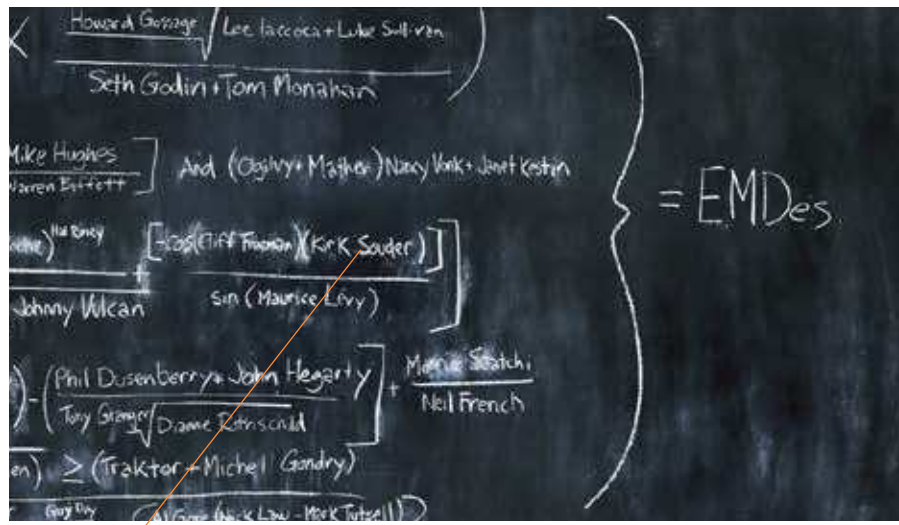 Howard Gossage √ Lee Iaccoca + Luke Sullivan
Seth Godin + Tom Monahan
Mike Hughes
Warren Buffett
And (Ogilvy + Mather) Nancy Vonk + Janet Kestin
= EMDes.
Hal Riney
[-cos(Cliff Freeman)(Kirk Souder)]
Johnny Vulcan
sin (Maurice Lévy)
(Phil Dusenberry + John Hegarty
Tony Granger √ Diane Rothschild
+ Maurice Saatchi
Neil French
en) ≥ (Traktor + Michel Gondry)
Guy Day
(Al Gore (Nick Law - Mark Tutssel))